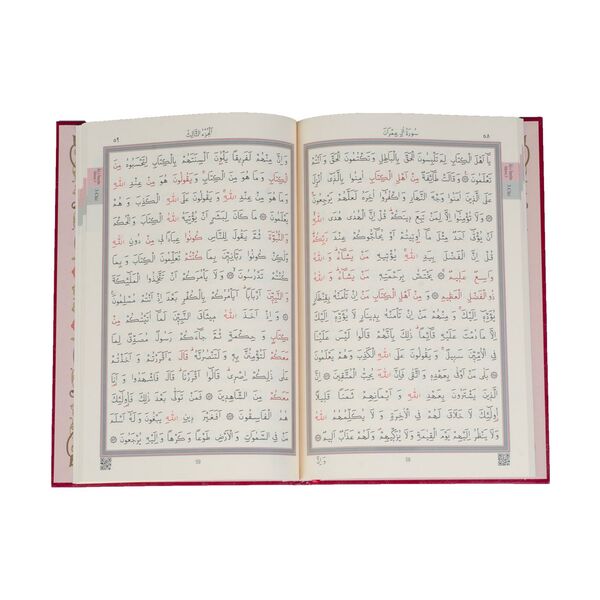 ٥٨ سُورَةُ اٰلِ عِمْرٰنَ
يَا اَهْلَ الْكِتَابِ لِمَ تَلْبِسُونَ الْحَقَّ بِالْبَاطِلِ وَتَكْتُمُونَ الْحَقَّ وَاَنْتُمْ
تَعْلَمُونَ وَقَالَتْ طَائِفَةٌ مِنْ اَهْلِ الْكِتَابِ اٰمِنُوا بِالَّذِي اُنْزِلَ
عَلَى الَّذِينَ اٰمَنُوا وَجْهَ النَّهَارِ وَاكْفُرُوا اٰخِرَهُ لَعَلَّهُمْ يَرْجِعُونَ
وَلَا تُؤْمِنُوا اِلَّا لِمَنْ تَبِعَ دِينَكُمْ قُلْ اِنَّ الْهُدٰى هُدَى اللّٰهِ
اَنْ يُؤْتٰى اَحَدٌ مِثْلَ مَا اُوتِيتُمْ اَوْ يُحَاجُّوكُمْ عِنْدَ رَبِّكُمْ
قُلْ اِنَّ الْفَضْلَ بِيَدِ اللّٰهِ يُؤْتِيهِ مَنْ يَشَاءُ وَاللّٰهُ
وَاسِعٌ عَلِيمٌ يَخْتَصُّ بِرَحْمَتِهِ مَنْ يَشَاءُ وَاللّٰهُ
ذُو الْفَضْلِ الْعَظِيمِ وَمِنْ اَهْلِ الْكِتَابِ مَنْ اِنْ تَأْمَنْهُ بِقِنْطَارٍ
يُؤَدِّهِ اِلَيْكَ وَمِنْهُمْ مَنْ اِنْ تَأْمَنْهُ بِدِينَارٍ لَا يُؤَدِّهِ اِلَيْكَ
اِلَّا مَا دُمْتَ عَلَيْهِ قَائِمًا ذٰلِكَ بِاَنَّهُمْ قَالُوا لَيْسَ عَلَيْنَا
فِي الْاُمِّيِّنَ سَبِيلٌ وَيَقُولُونَ عَلَى اللّٰهِ الْكَذِبَ وَهُمْ يَعْلَمُونَ
بَلٰى مَنْ اَوْفٰى بِعَهْدِهِ وَاتَّقٰى فَاِنَّ اللّٰهَ يُحِبُّ الْمُتَّقِينَ اِنَّ
الَّذِينَ يَشْتَرُونَ بِعَهْدِ اللّٰهِ وَاَيْمَانِهِمْ ثَمَنًا قَلِيلًا
اُولٰئِكَ لَا خَلَاقَ لَهُمْ فِي الْاٰخِرَةِ وَلَا يُكَلِّمُهُمُ اللّٰهُ
وَلَا يَنْظُرُ اِلَيْهِمْ يَوْمَ الْقِيٰمَةِ وَلَا يُزَكِّيهِمْ وَلَهُمْ عَذَابٌ اَلِيمٌ
وَاِنَّ
اَلْجُزْءُ الثَّالِثُ ٥٩
وَاِنَّ مِنْهُمْ لَفَرِيقًا يَلْوُونَ اَلْسِنَتَهُمْ بِالْكِتَابِ لِتَحْسَبُوهُ مِنَ
الْكِتَابِ وَمَا هُوَ مِنَ الْكِتَابِ وَيَقُولُونَ هُوَ مِنْ عِنْدِ اللّٰهِ
وَمَا هُوَ مِنْ عِنْدِ اللّٰهِ وَيَقُولُونَ عَلَى اللّٰهِ الْكَذِبَ وَهُمْ
يَعْلَمُونَ مَا كَانَ لِبَشَرٍ اَنْ يُؤْتِيَهُ اللّٰهُ الْكِتَابَ وَالْحُكْمَ
وَالنُّبُوَّةَ ثُمَّ يَقُولَ لِلنَّاسِ كُونُوا عِبَادًا لِي مِنْ دُونِ اللّٰهِ
وَلٰكِنْ كُونُوا رَبَّانِيِّنَ بِمَا كُنْتُمْ تُعَلِّمُونَ الْكِتَابَ وَبِمَا
كُنْتُمْ تَدْرُسُونَ وَلَا يَأْمُرَكُمْ اَنْ تَتَّخِذُوا الْمَلٰئِكَةَ
وَالنَّبِيِّنَ اَرْبَابًا اَيَأْمُرُكُمْ بِالْكُفْرِ بَعْدَ اِذْ اَنْتُمْ مُسْلِمُونَ
وَاِذْ اَخَذَ اللّٰهُ مِيثَاقَ النَّبِيِّنَ لَمَا اٰتَيْتُكُمْ مِنْ
كِتَابٍ وَحِكْمَةٍ ثُمَّ جَاءَكُمْ رَسُولٌ مُصَدِّقٌ لِمَا
مَعَكُمْ لَتُؤْمِنُنَّ بِهِ وَلَتَنْصُرُنَّهُ قَالَ ءَاَقْرَرْتُمْ وَاَخَذْتُمْ
عَلٰى ذٰلِكُمْ اِصْرِي قَالُوا اَقْرَرْنَا قَالَ فَاشْهَدُوا وَاَنَا
مَعَكُمْ مِنَ الشَّاهِدِينَ فَمَنْ تَوَلّٰى بَعْدَ ذٰلِكَ فَاُولٰئِكَ
هُمُ الْفَاسِقُونَ اَفَغَيْرَ دِينِ اللّٰهِ يَبْغُونَ وَلَهُ اَسْلَمَ
مَنْ فِي السَّمٰوَاتِ وَالْاَرْضِ طَوْعًا وَكَرْهًا وَاِلَيْهِ يُرْجَعُونَ